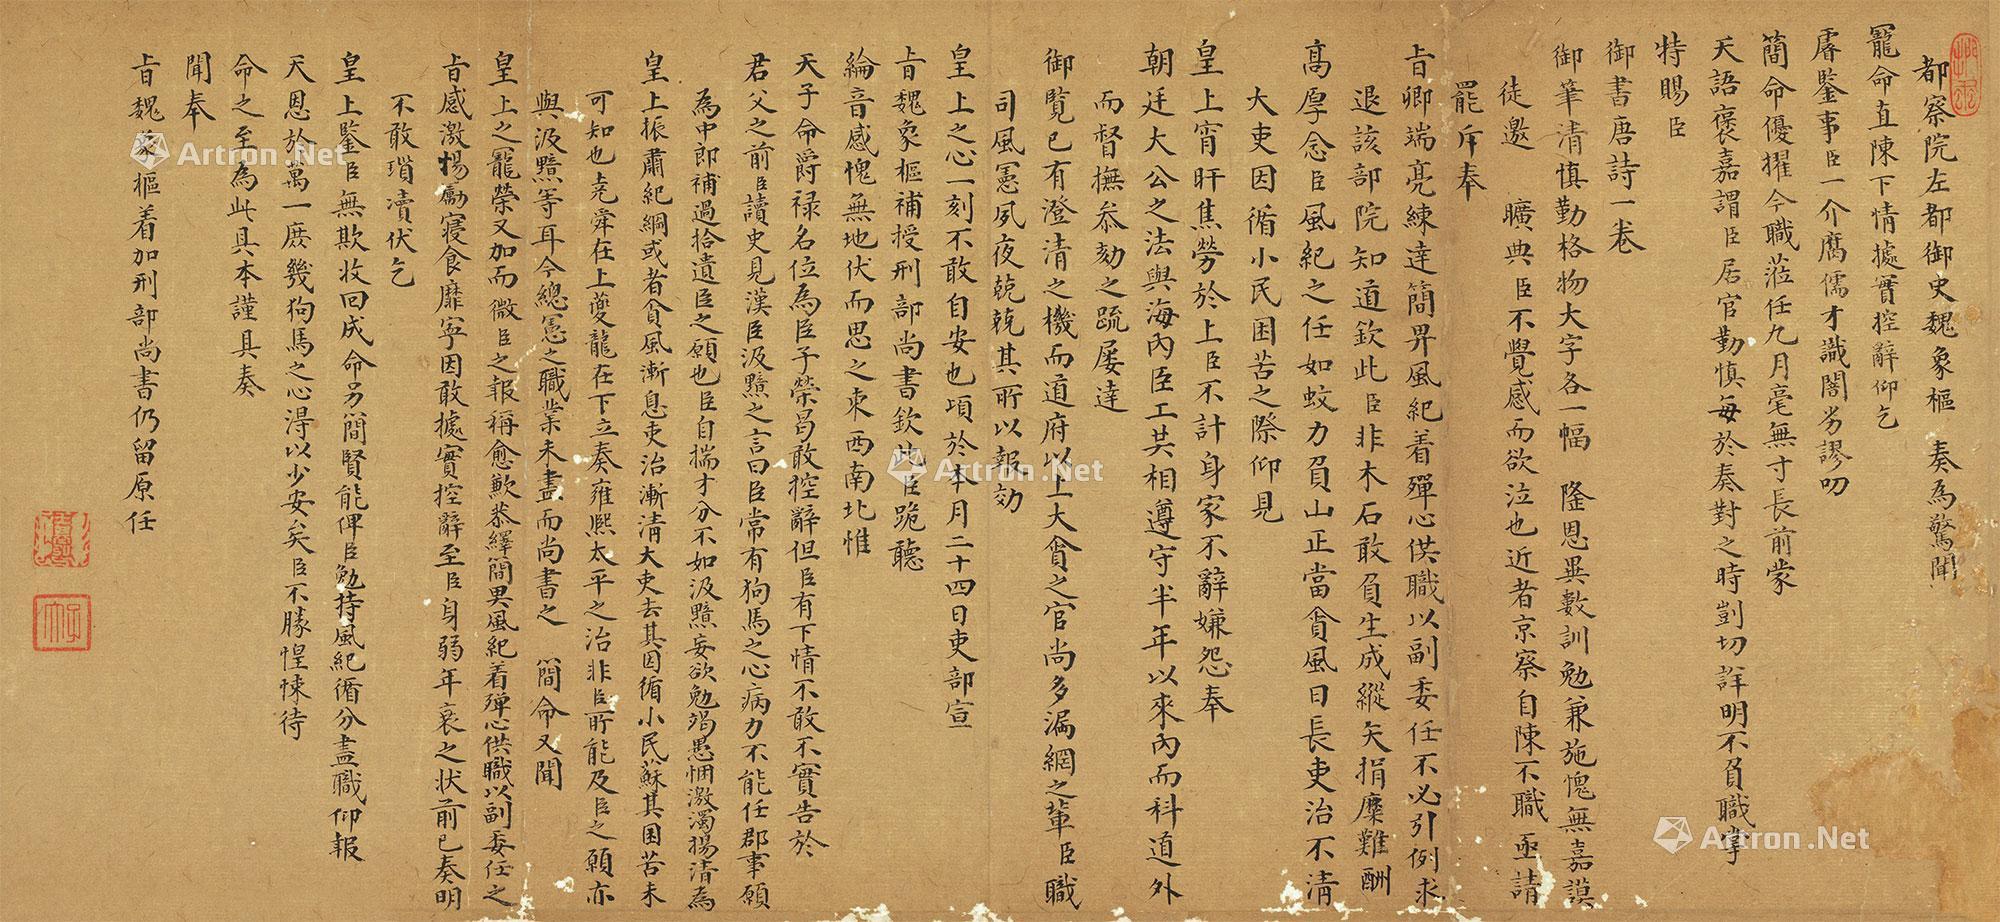 都察院左都御史魏象樞　奏為驚聞
寵命直陳下情據實控辭仰乞
睿鑒事臣一介腐儒才識闇劣謬叨
簡命優擢今職蒞任九月毫無寸長前蒙
天語褒嘉謂臣居官勤慎每於奏對之時剴切詳明不負職掌
特賜臣
御書唐詩一卷
御筆清慎勤格物大字各一幅　隆恩異數訓勉兼施愧無嘉謨
徒邀　曠典臣不覺感而欲泣也近者京察自陳不職亟請
罷斥奉
旨卿端亮練達簡畀風紀着殫心供職以副委任不必引例求
退該部院知道欽此臣非木石敢負生成縱矢捐糜難酬
高厚念臣風紀之任如蚊力負山正當貪風日長吏治不清
大吏因循小民困苦之際仰見
皇上宵旰焦勞於上臣不計身家不辭嫌怨奉
朝廷大公之法與海內臣工共相遵守半年以來內而科道外
而督撫叅劾之疏屢達
御覽已有澄清之機而道府以上大貪之官尚多漏網之輩臣職
司風憲夙夜兢兢其所以報効
皇上之心一刻不敢自安也頃於本月二十四日吏部宣
旨魏象樞補授刑部尚書欽此臣跪聽
綸音感愧無地伏而思之東西南北惟
天子命爵祿名位為臣子榮曷敢控辭但臣有下情不敢不實告於
君父之前臣讀史見漢臣汲黯之言曰臣常有狗馬之心病力不能任郡事願
為中郎補過拾遺臣之願也臣自揣才分不如汲黯妄欲勉竭愚悃激濁揚清為
皇上振肅紀綱或者貪風漸息吏治漸清大吏去其因循小民蘇其困苦未
可知也堯舜在上夔龍在下立奏雍熙太平之治非臣所能及臣之願亦
與汲黯等耳今總憲之職業未盡而尚書之　簡命又聞
皇上之寵榮又加而微臣之報稱愈歉恭繹簡畀風紀着殫心供職以副委任之
旨感激惕勵寢食靡寧因敢據實控辭至臣身弱年衰之狀前已奏明
不敢瑣瀆伏乞
皇上鑒臣無欺收回成命另簡賢能俾臣勉持風紀循分盡職仰報
天恩於萬一庶幾狗馬之心得以少安矣臣不勝惶悚待
命之至為此具本謹具奏
聞奉
旨魏象樞着加刑部尚書仍留原任
Artron.Net
Artron.Net
Artron.Net
Artron.Net